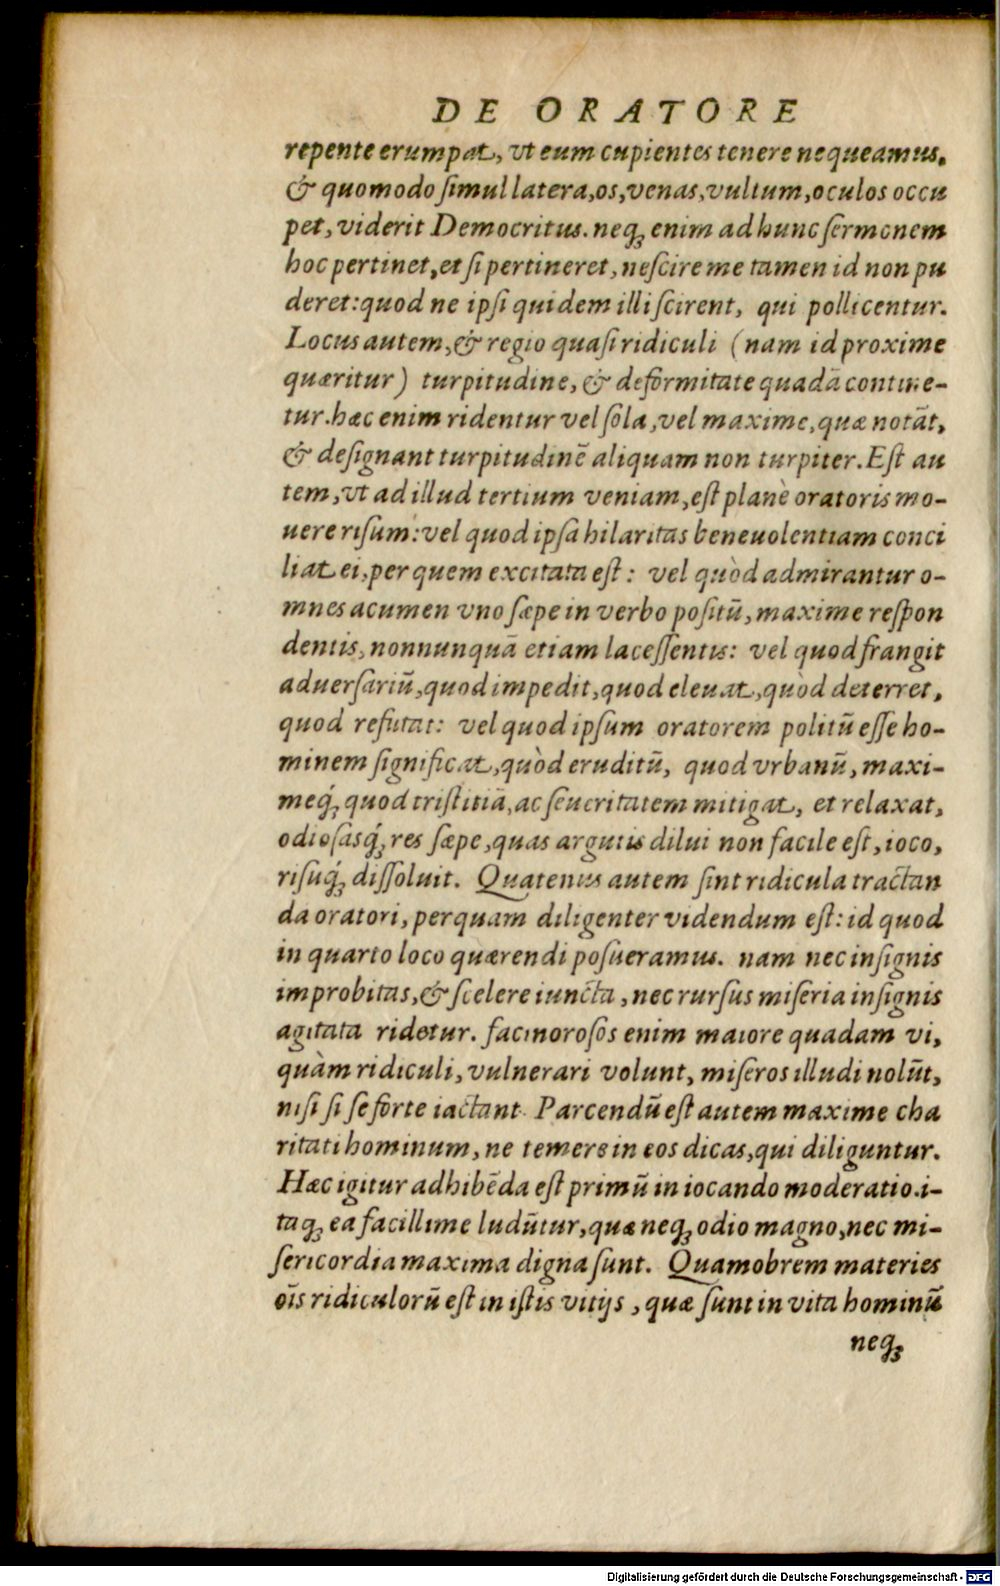 DE ORATORE
repente erumpat, vt eum cupientes tenere nequeamus.
& quomodo ſimul latera, os, venas, vultum, oculos occu
pet, viderit Democritus. neqꝫ enim ad hunc ſermonem
hoc pertinet, et ſi pertineret, neſcire me tamen id non pu
deret: quod ne ipſi quidem illi ſcirent, qui pollicentur.
Locus autem, & regio quaſi ridiculi (nam id proxime
quæritur) turpitudine, & deformitate quadã contine-
tur. hæc enim ridentur vel ſola, vel maxime, quæ notãt,
& deſignant turpitudinẽ aliquam non turpiter. Eſt au
tem, vt ad illud tertium veniam, eſt planè oratoris mo-
uere riſum: vel quod ipſa hilaritas beneuolentiam conci
liat ei, per quem excitata eſt: vel quòd admirantur o-
mnes acumen vno ſæpe in verbo poſitũ, maxime reſpon
dentis, nonnunquã etiam laceſſentis: vel quod frangit
aduerſariũ, quod impedit, quod eleuat, quòd deterret,
quod refutat: vel quod ipſum oratorem politũ eſſe ho-
minem ſignificat, quòd eruditũ, quod vrbanũ, maxi-
meqꝫ́ quod triſtitiã, ac ſeueritatem mitigat, et relaxat,
odioſasqꝫ́ res ſæpe, quas argutis dilui non facile eſt, ioco,
riſuqꝫ́ diſſoluit. Quatenus autem ſint ridicula tractan
da oratori, perquam diligenter videndum eſt: id quod
in quarto loco quærendi poſueramus. nam nec inſignis
improbitas, & ſcelere iuncta, nec rurſus miſeria inſignis
agitata ridetur. facinoroſos enim maiore quadam vi,
quàm ridiculi, vulnerari volunt, miſeros illudi nolũt,
niſi ſi ſe forte iactant. Parcendũ eſt autem maxime cha
ritati hominum, ne temere in eos dicas, qui diliguntur.
Hæc igitur adhibẽda eſt primũ in iocando moderatio. i-
taqꝫ ea facillime ludũtur, quæ neqꝫ odio magno, nec mi-
ſericordia maxima digna ſunt. Quamobrem materies
oĩs ridiculorũ eſt in iſtis vitijs, quæ ſunt in vita hominũ
neqꝫ
Digitalisierung gefördert durch die Deutsche Forschungsgemeinschaft - DFG